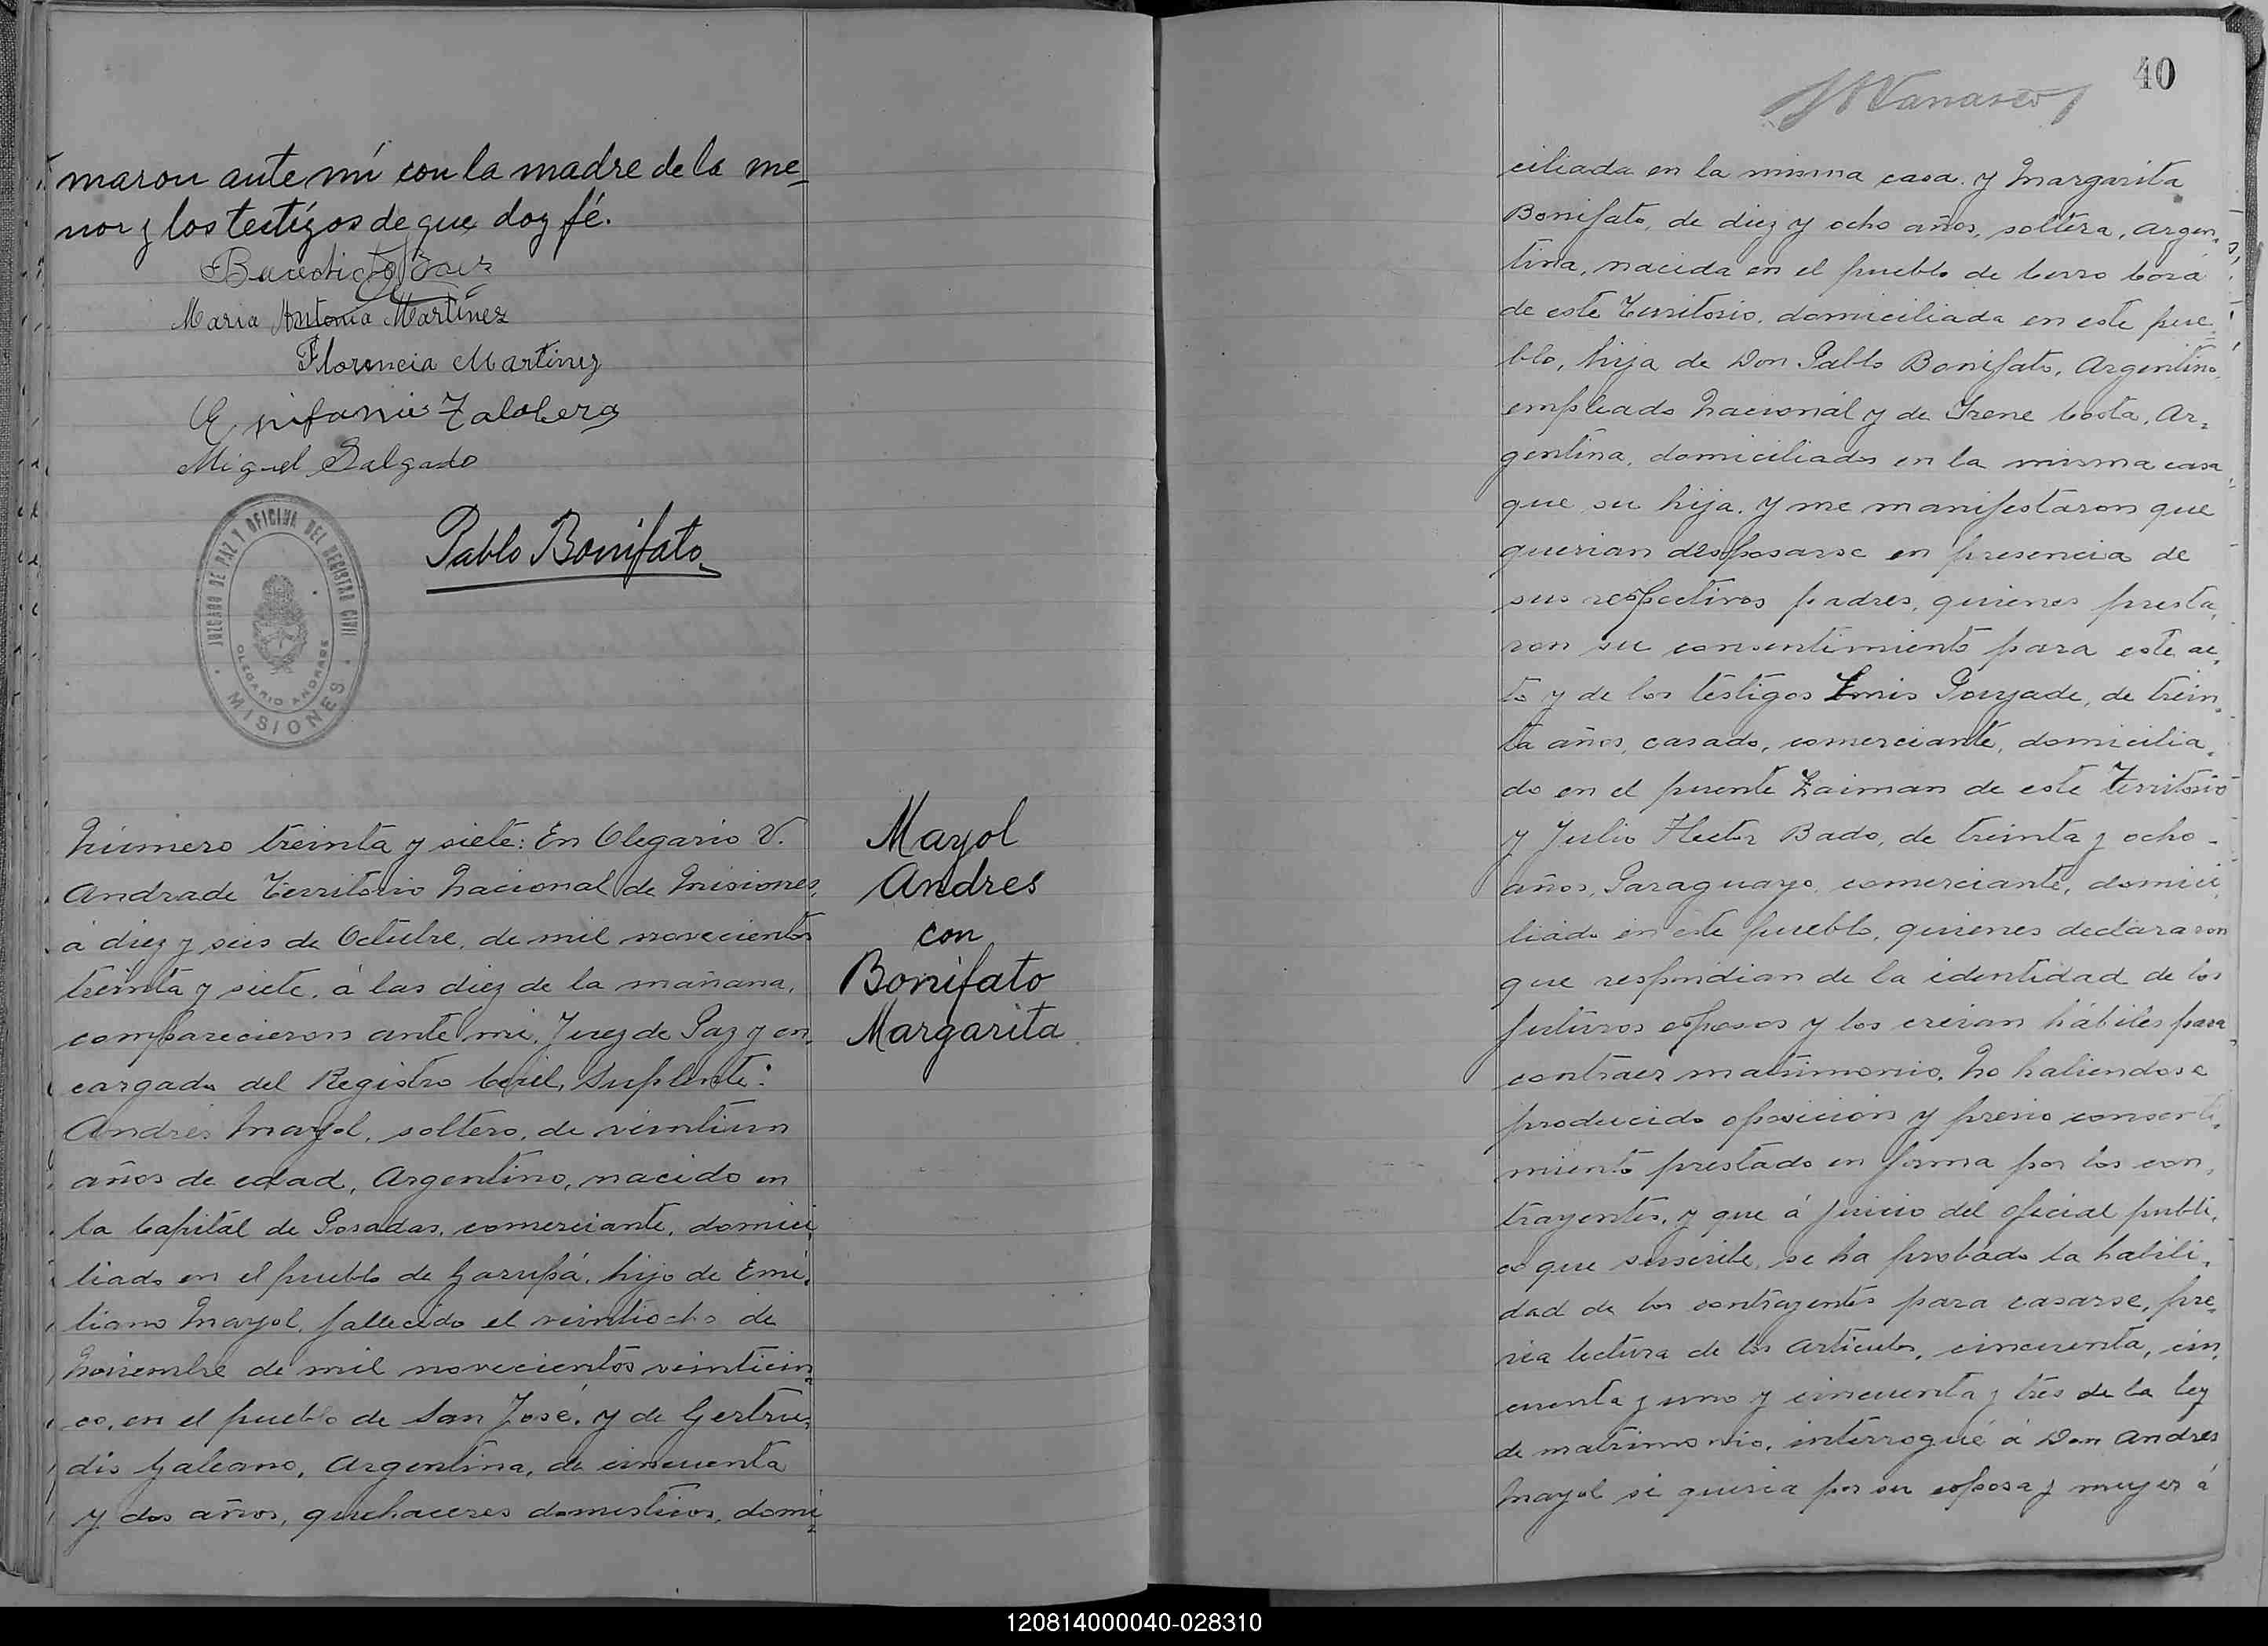 maron ante mí con la madre de la me-
nor y los testigos de que doy fé.
Maria Antonia Martinez
Florencia Martinez
Epifanio Zalabera
Miguel Salgado
Pablo Bonifato
JUZGADO DE PAZ Y OFICINA DEL REGISTRO CIVIL
OLEGARIO ANDRADE
MISIONES
Número treinta y siete: En Olegario V.
Andrade Territorio Nacional de Misiones,
á diez y seis de Octubre, de mil novecientos
treinta y siete, á las diez de la mañana,
comparecieron ante mi, Juez de Paz y en-
cargado del Registro Civil, Suplente:
Andrés Mayol, soltero, de veintiun
años de edad, Argentino, nacido en
la Capital de Posadas, comerciante, domici-
liado en el pueblo de Garupá, hijo de Emi-
liano Mayol, fallecido el veintiocho de
Noviembre de mil novecientos veinticin-
co, en el pueblo de San José, y de Gertru-
dis Galeano, Argentina, de cincuenta
y dos años, quehaceres domesticos, domi-
Mayol
Andres
con
Bonifato
Margarita
40
ciliada en la misma casa. y Margarita
Bonifato, de diez y ocho años, soltera, argen-
tina, nacida en el pueblo de Cerro Corá
de este Territorio, domiciliada en este pue-
blo, hija de Don Pablo Bonifato, Argentino,
empleado Nacional y de Irene Costa, Ar-
gentina, domiciliados en la misma casa
que su hija. y me manifestaron que
querian desposarse en presencia de
sus respectivos padres, quienes presta-
ron su consentimiento para este ac-
to y de los testigos Luis Pouyade, de trein-
ta años, casado, comerciante, domicilia-
do en el puente Zaiman de este Territorio
y Julio Hector Bado, de treinta y ocho -
años, Paraguayo, comerciante, domici-
liado en este pueblo, quienes declararon
que respondian de la identidad de los
futuros esposos y los creian hábiles para
contraer matrimonio. No habiendose
producido oposición y previo consenti-
miento prestado en forma por los con-
trayentes, y que á juicio del oficial públi-
co que suscribe, se ha probado la habili-
dad de los contrayentes para casarse, pre-
via lectura de los articulos, cincuenta, cin-
cuenta y uno y cincuenta y tres de la ley
de matrimonio, interrogué á Don Andres
Mayol si queria por su esposa y mujer á
120814000040-028310